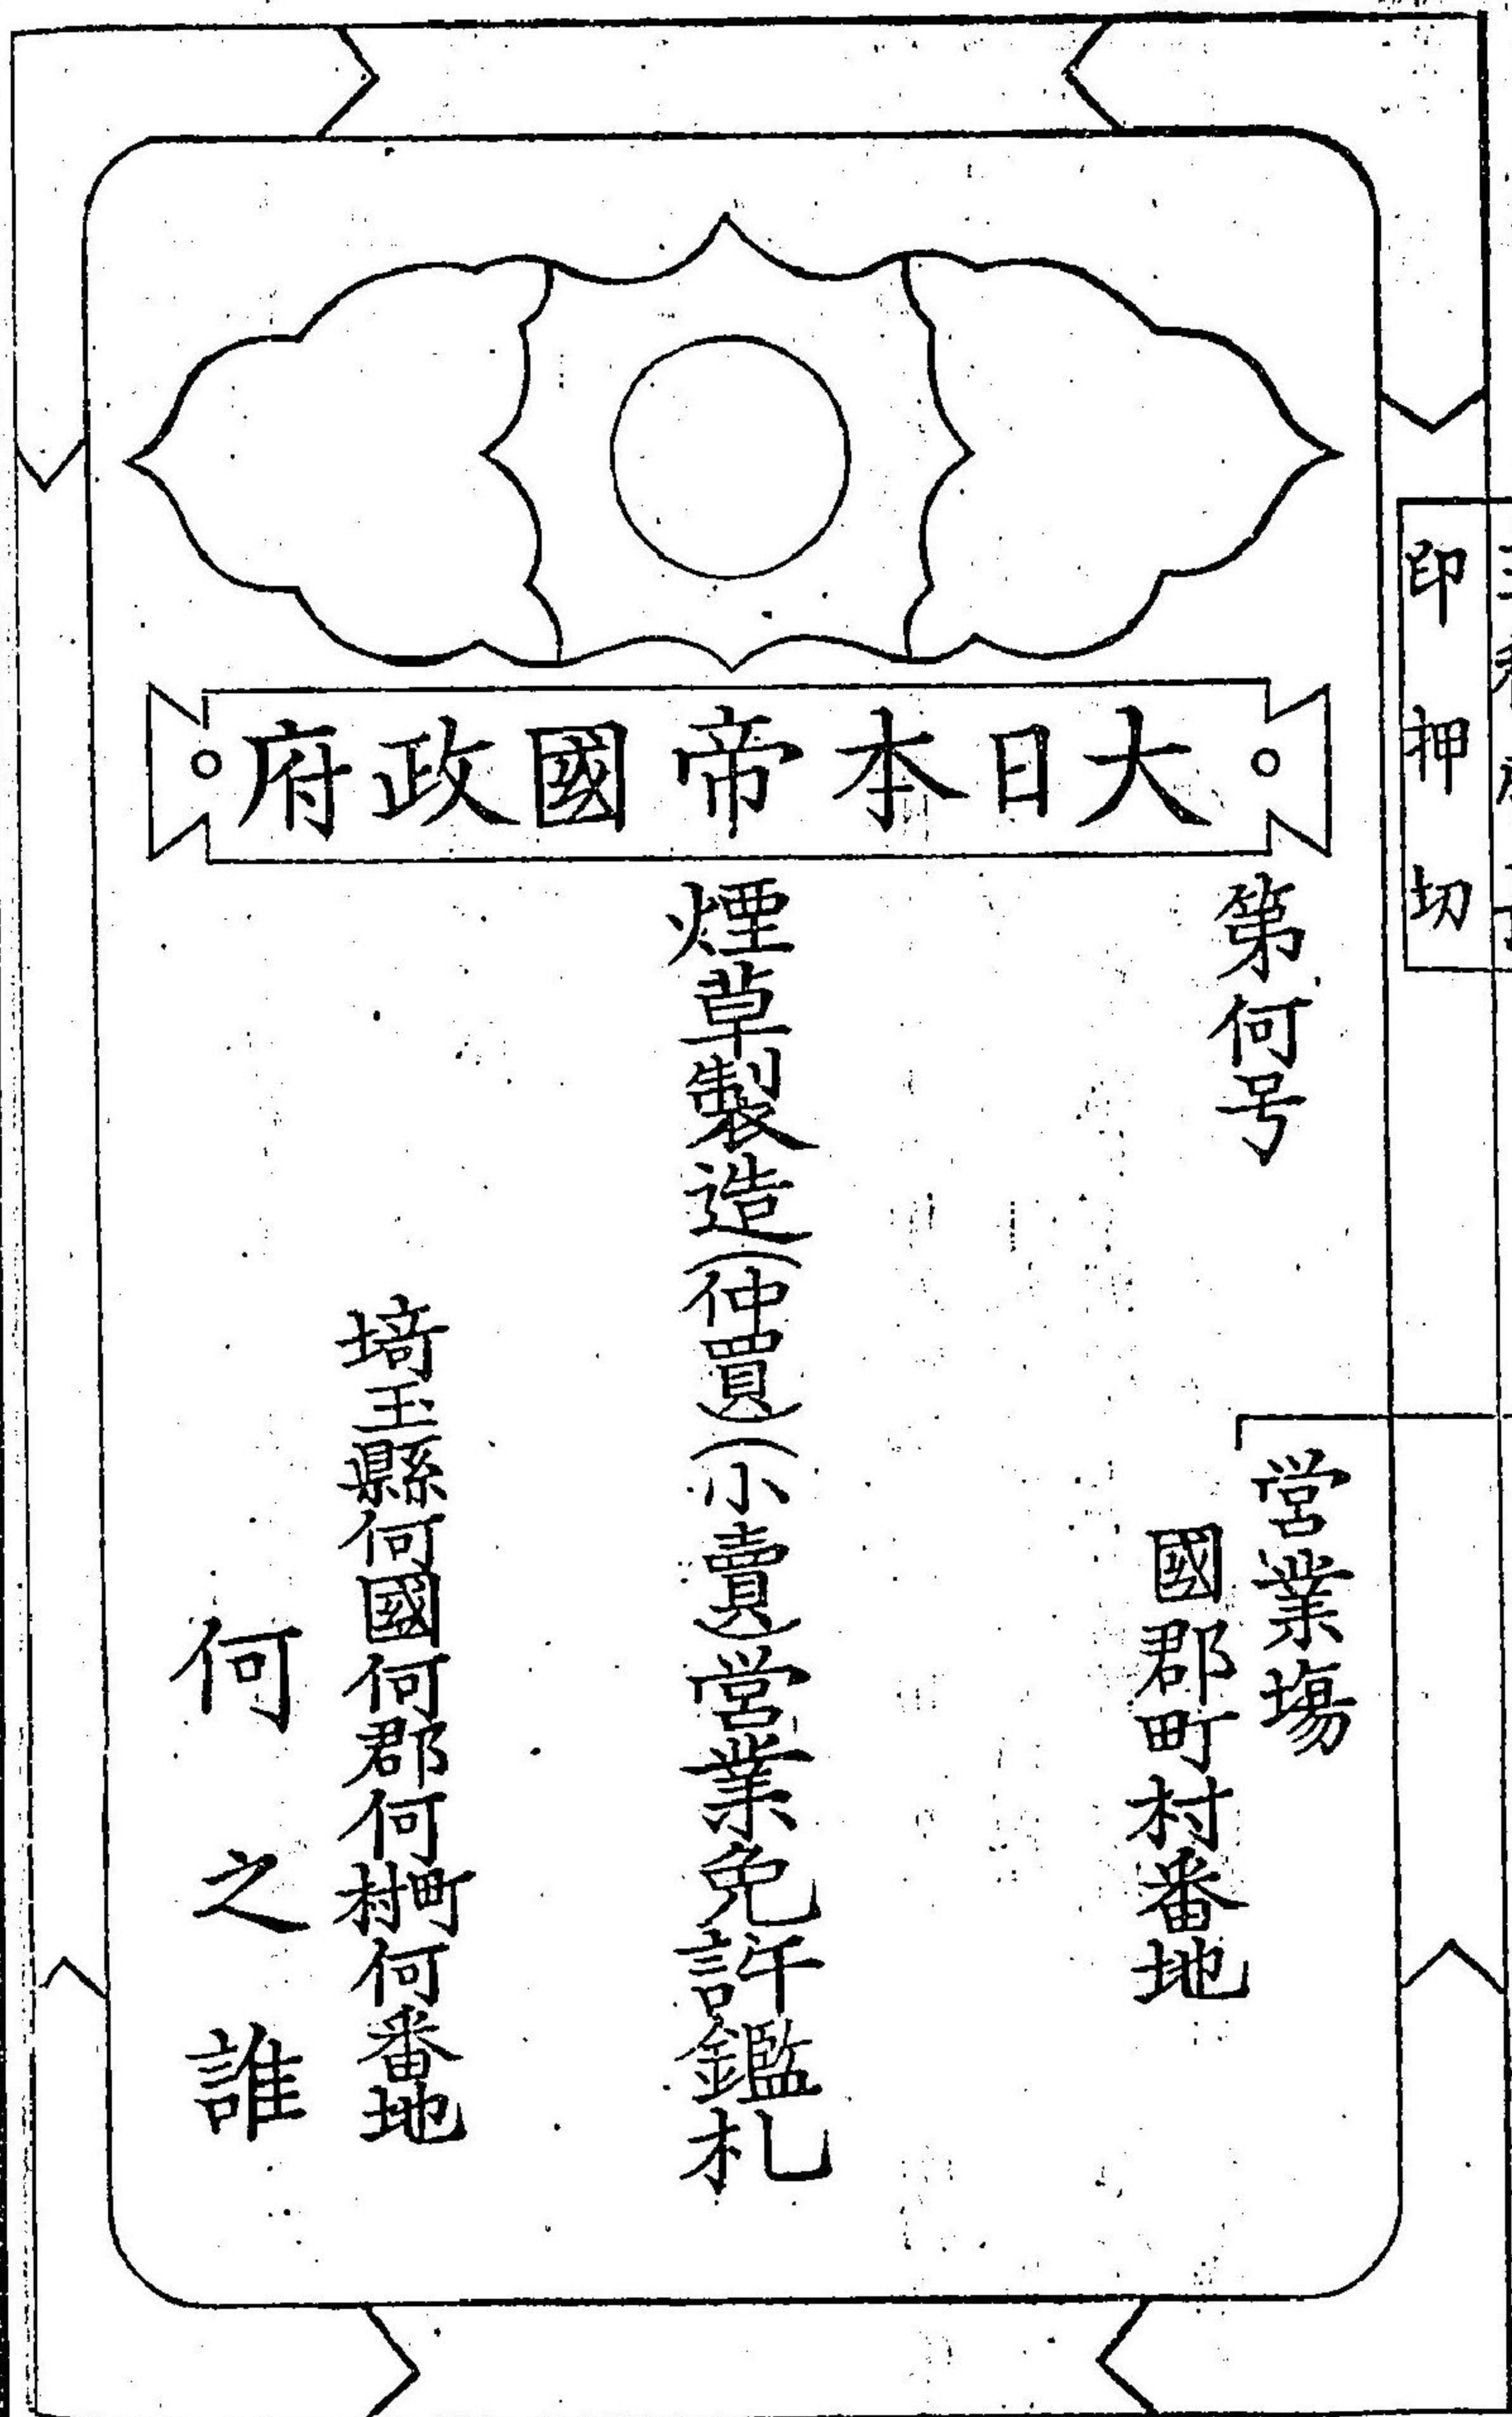 印押切
大日本帝國政府
第何号
営業場
國郡町村番地
煙草製造(仲買)(小賣)営業免許鑑札
埼玉縣何國何郡何町村何番地
何之誰